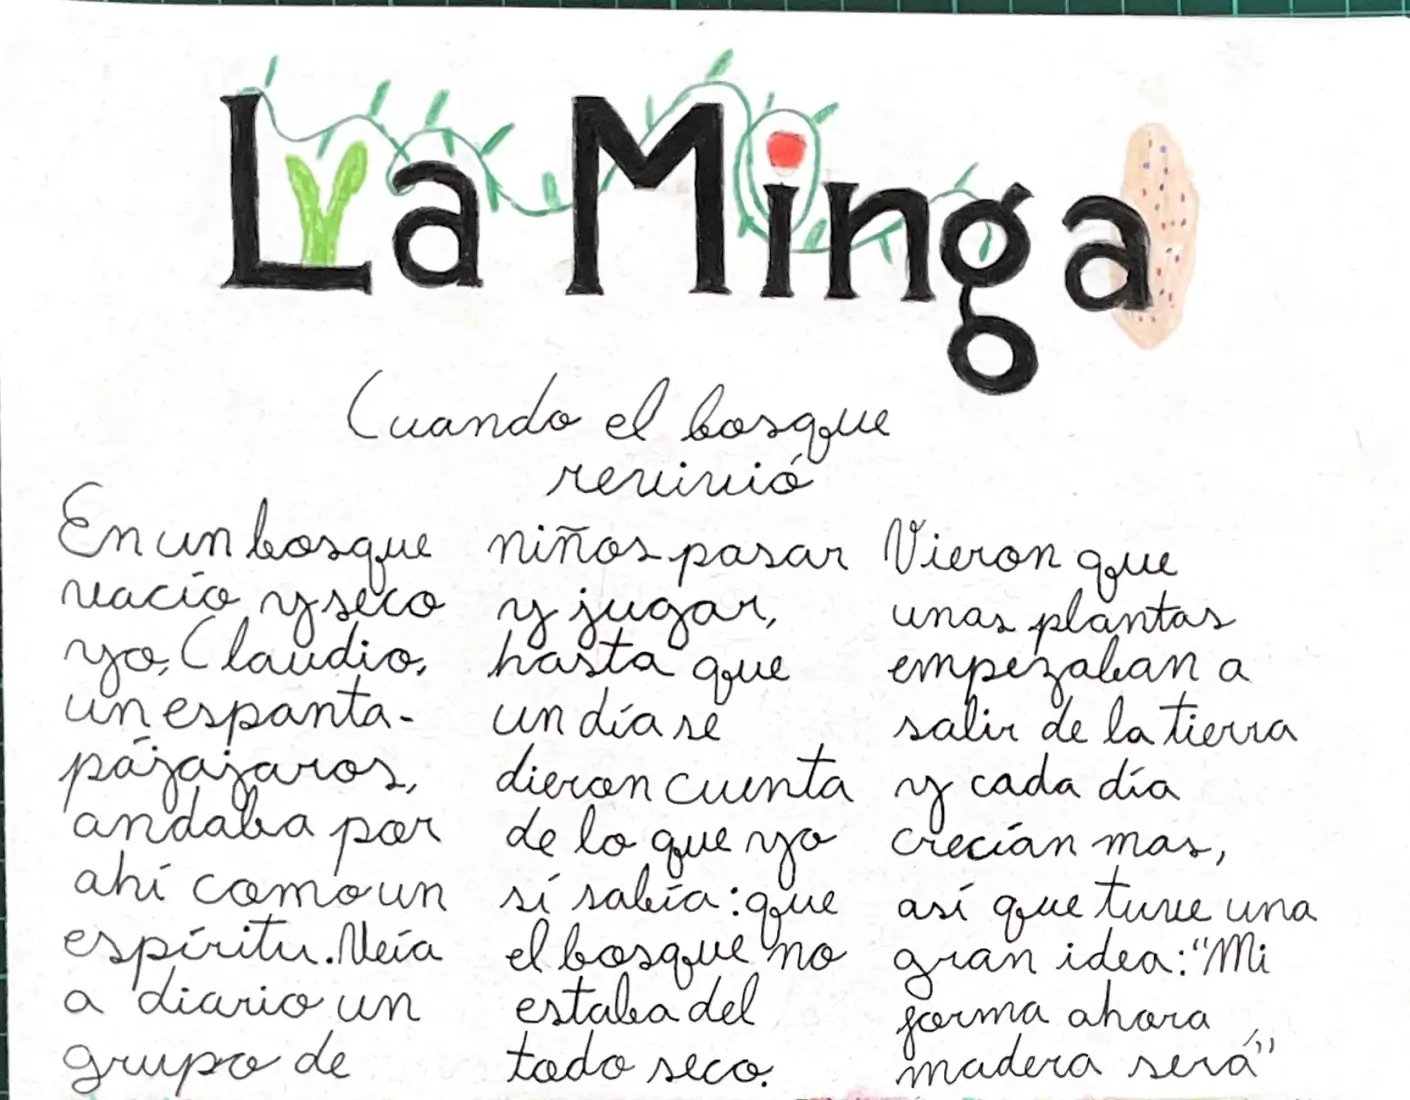 La Minga
Cuando el bosque
revivió
En un bosque
vacío y seco
yo, Claudio,
un espanta-
pájajaros,
andaba por
ahí como un
espíritu. Veía
a diario un
grupo de
niños pasar
y jugar,
hasta que
un día se
dieron cuenta
de lo que yo
sí sabía: que
el bosque no
estaba del
todo seco.
Vieron que
unas plantas
empezaban a
salir de la tierra
y cada día
crecían mas,
así que tuve una
gran idea: "Mi
forma ahora
madera será"